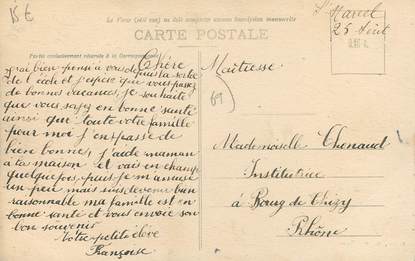 15€
Le Verso (côté vue) ne doit comporter aucune inscription manuscrite
St Marcel
25 Août
CARTE POSTALE
Partie exclusivement réservée à la Correspondance
Chère
Maîtresse
69
j'ai bien pensé à vous depuis la sortie
de l'école et j'espère que vous passez
de bonnes vacances, je souhaite
que vous soyez en bonne santé
ainsi que toute votre famille
pour moi j'en passe de
bien bonnes, j'aide maman
à la maison et vais en champ
quelquefois, puis je m'amuse
un peu mais suis devenue bien
raisonnable ma famille est en
bonne santé et vous envoie son
bon souvenir
Votre petite élève
Françoise
Mademoiselle Thenaud
Institutrice
à Bourg de Thizy
Rhône